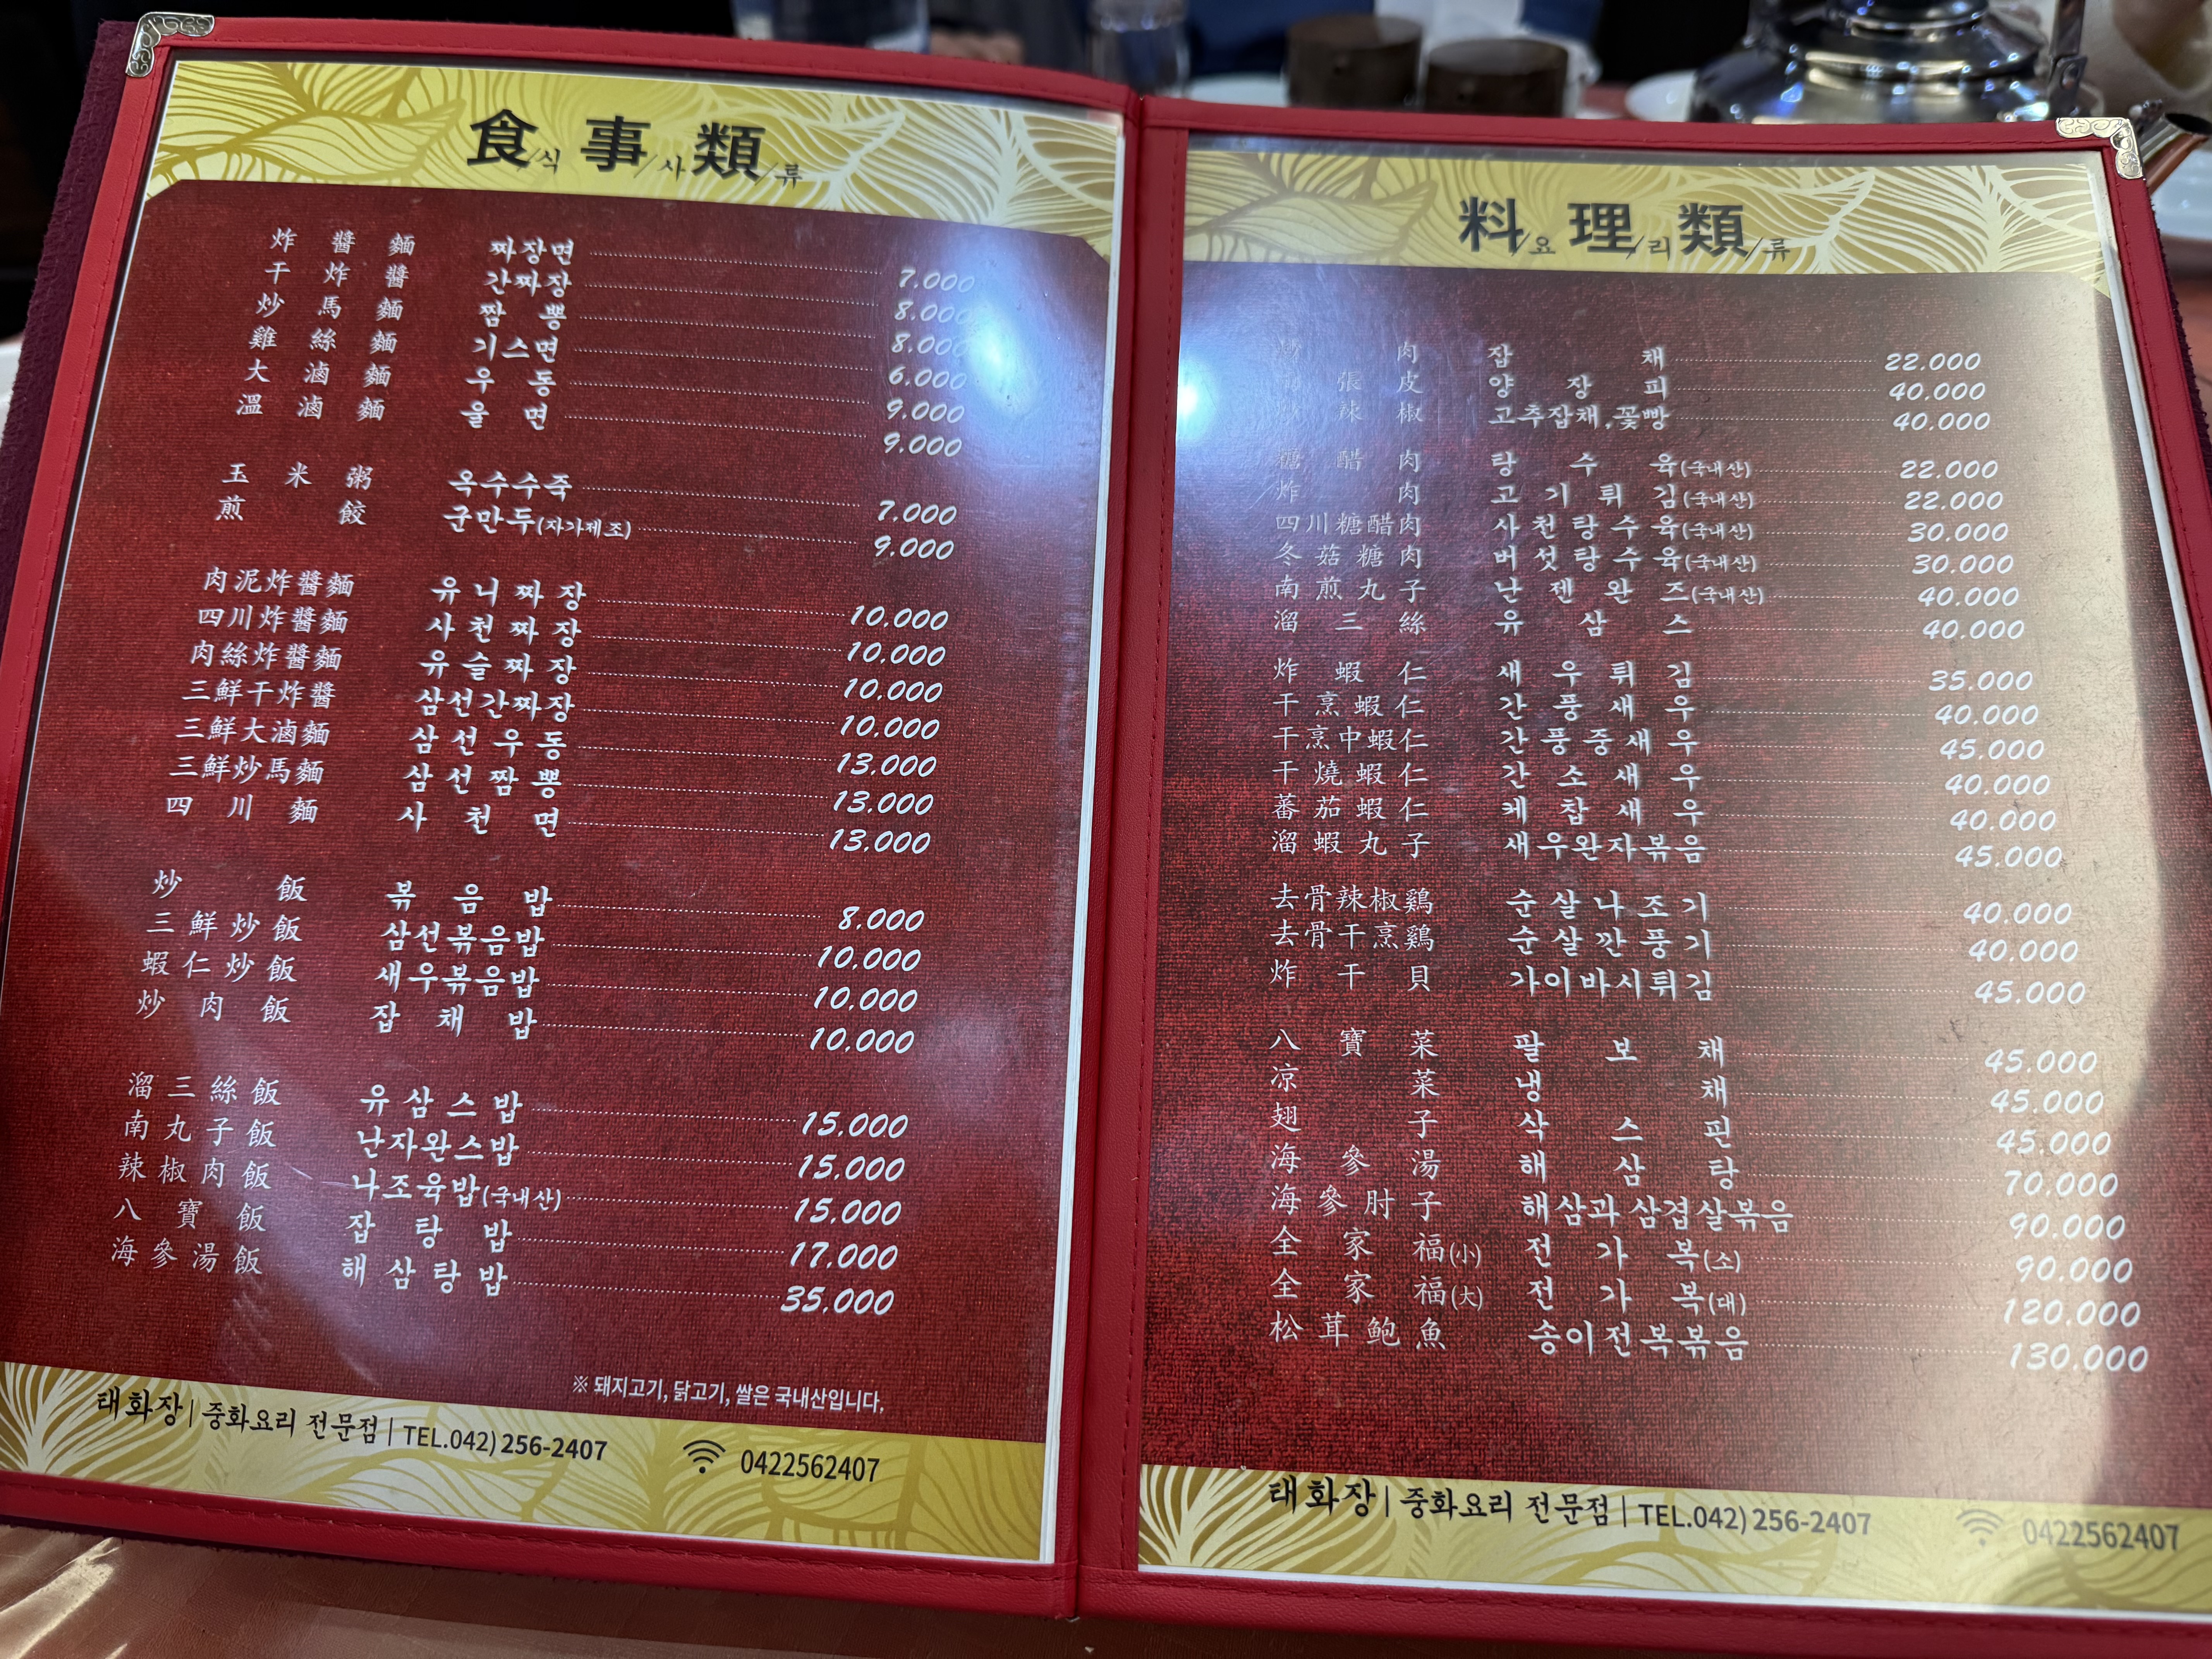 食/식 事/사 類/류
炸醬麵 짜장면 7.000
干炸醬 간짜장 8.000
炒馬麵 짬뽕 8.000
雞絲麵 기스면 6.000
大滷麵 우동 9.000
溫滷麵 울면 9.000
玉米粥 옥수수죽 7.000
煎餃 군만두(자가제조) 9.000
肉泥炸醬麵 유니짜장 10.000
四川炸醬麵 사천짜장 10.000
肉絲炸醬麵 유슬짜장 10.000
三鮮干炸醬 삼선간짜장 10.000
三鮮大滷麵 삼선우동 13.000
三鮮炒馬麵 삼선짬뽕 13.000
四川麵 사천면 13.000
炒飯 볶음밥 8.000
三鮮炒飯 삼선볶음밥 10.000
蝦仁炒飯 새우볶음밥 10.000
炒肉飯 잡채밥 10.000
溜三絲飯 유삼스밥 15.000
南丸子飯 난자완스밥 15.000
辣椒肉飯 나조육밥(국내산) 15.000
八寶飯 잡탕밥 17.000
海參湯飯 해삼탕밥 35.000
※ 돼지고기, 닭고기, 쌀은 국내산입니다.
태화장 | 중화요리 전문점 | TEL.042) 256-2407 0422562407
料/요 理/리 類/류
肉 잡채 22.000
張皮 양장피 40.000
辣椒 고추잡채,꽃빵 40.000
糖醋肉 탕수육(국내산) 22.000
炸肉 고기튀김(국내산) 22.000
四川糖醋肉 사천탕수육(국내산) 30.000
冬菇糖肉 버섯탕수육(국내산) 30.000
南煎丸子 난젠완즈(국내산) 40.000
溜三絲 유삼스 40.000
炸蝦仁 새우튀김 35.000
干烹蝦仁 간풍새우 40.000
干烹中蝦仁 간풍중새우 45.000
干燒蝦仁 간소새우 40.000
蕃茄蝦仁 케찹새우 40.000
溜蝦丸子 새우완자볶음 45.000
去骨辣椒鷄 순살나조기 40.000
去骨干烹鷄 순살깐풍기 40.000
炸干貝 가이바시튀김 45.000
八寶菜 팔보채 45.000
凉菜 냉채 45.000
翅子 삭스핀 45.000
海參湯 해삼탕 70.000
海參肘子 해삼과삼겹살볶음 90.000
全家福(小) 전가복(소) 90.000
全家福(大) 전가복(대) 120.000
松茸鮑魚 송이전복볶음 130.000
태화장 | 중화요리 전문점 | TEL.042) 256-2407 0422562407